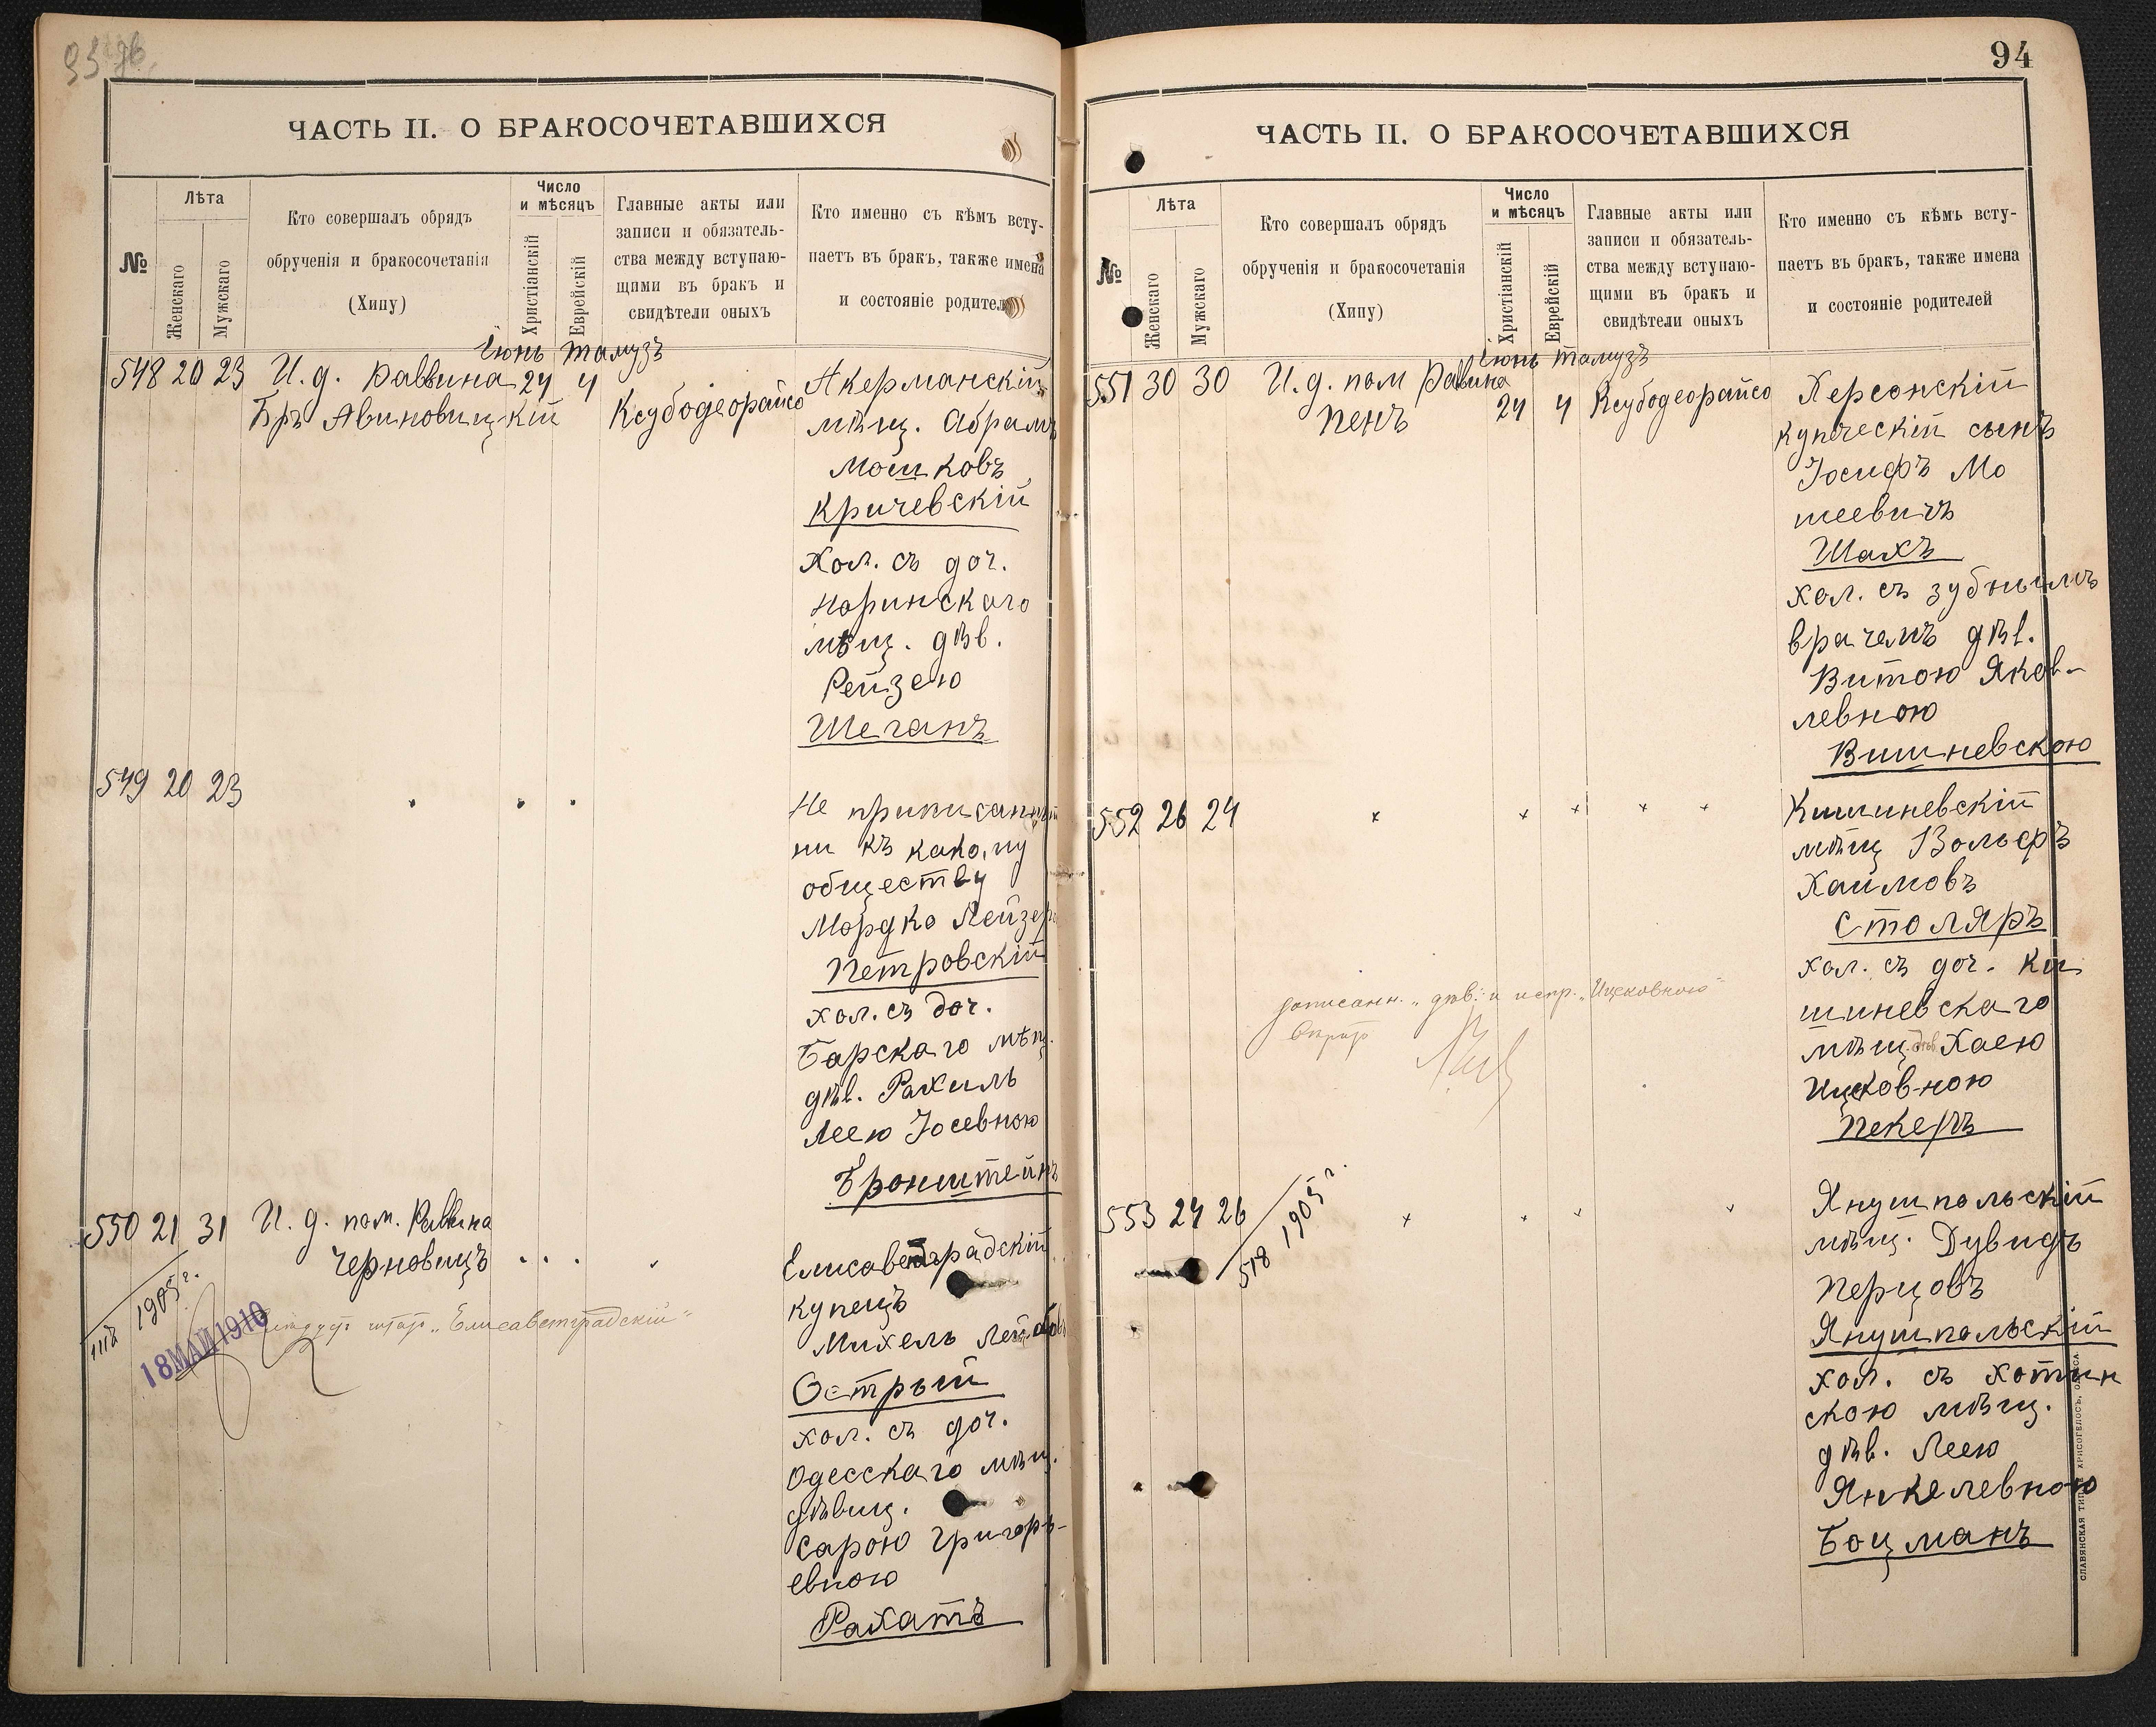 ЧАСТЬ II. О БРАКОСОЧЕТАВШИХСЯ
№
Лѣта
Женскаго
Мужскаго
Кто совершалъ обрядъ
обрученія и бракосочетанія
(Хипу)
Число
и мѣсяцъ
Христіанскій
Еврейскій
Главные акты или
записи и обязатель-
ства между вступаю-
щими въ бракъ и
свидѣтели оныхъ
Кто именно съ кѣмъ всту-
паетъ въ бракъ, также имена
и состояніе родителей
Іюнь Тамузъ
548 20 23 И. д. Раввина 24 4
Бръ Авиновицкій Ксубодеорайсо
Акерманскій
мѣщ. Абрамъ
Мошковъ
Кричевскій
хол. съ доч.
Норинскаго
мѣщ. дѣв.
Рейзею
Шеганъ
549 20 23
Не приписанный
ни къ какому
обществу
Мордко Лейзер
Петровскій
хол. съ доч.
Барскаго мѣщ.
дѣв. Рахиль
Леею Іосевною
Бронштейнъ
550 21 31 И. д. пом. Раввина
Черновицъ
1905 г.
18 МАЙ 1910
"Елисаветградскій"
Елисаветградскій
купецъ
Михель
Острый
хол. съ доч.
Одесскаго мѣщ.
дѣвиц.
Сарою Григорь-
евною
Рахатъ
94
ЧАСТЬ II. О БРАКОСОЧЕТАВШИХСЯ
№
Лѣта
Женскаго
Мужскаго
Кто совершалъ обрядъ
обрученія и бракосочетанія
(Хипу)
Число
и мѣсяцъ
Христіанскій
Еврейскій
Главные акты или
записи и обязатель-
ства между вступаю-
щими въ бракъ и
свидѣтели оныхъ
Кто именно съ кѣмъ всту-
паетъ въ бракъ, также имена
и состояніе родителей
Іюнь Тамузъ
551 30 30 И. д. пом Равина
Пенъ 24 4 Ксубодеорайсо
Херсонскій
купеческій сынъ
Іосифъ Мо
шеевичъ
Шахъ
хол. съ зубнымъ
врачемъ дѣв.
Витою Яков-
левною
Вишневскою
552 26 24
Кишиневскій
мѣщ Вольфъ
Хаимовъ
Столяръ
хол. съ доч. Ки
шиневскаго
мѣщ. дѣв Хаею
Ицковною
Пекеръ
дописанн. "дѣв." и испр. "Ицковною"
553 24 26
518 1905 г.
Янушпольскій
мѣщ. Дувидъ
Перцовъ
Янушпольскій
хол. съ хотин
скою мѣщ.
дѣв. Леею
Янкелевною
Боцманъ